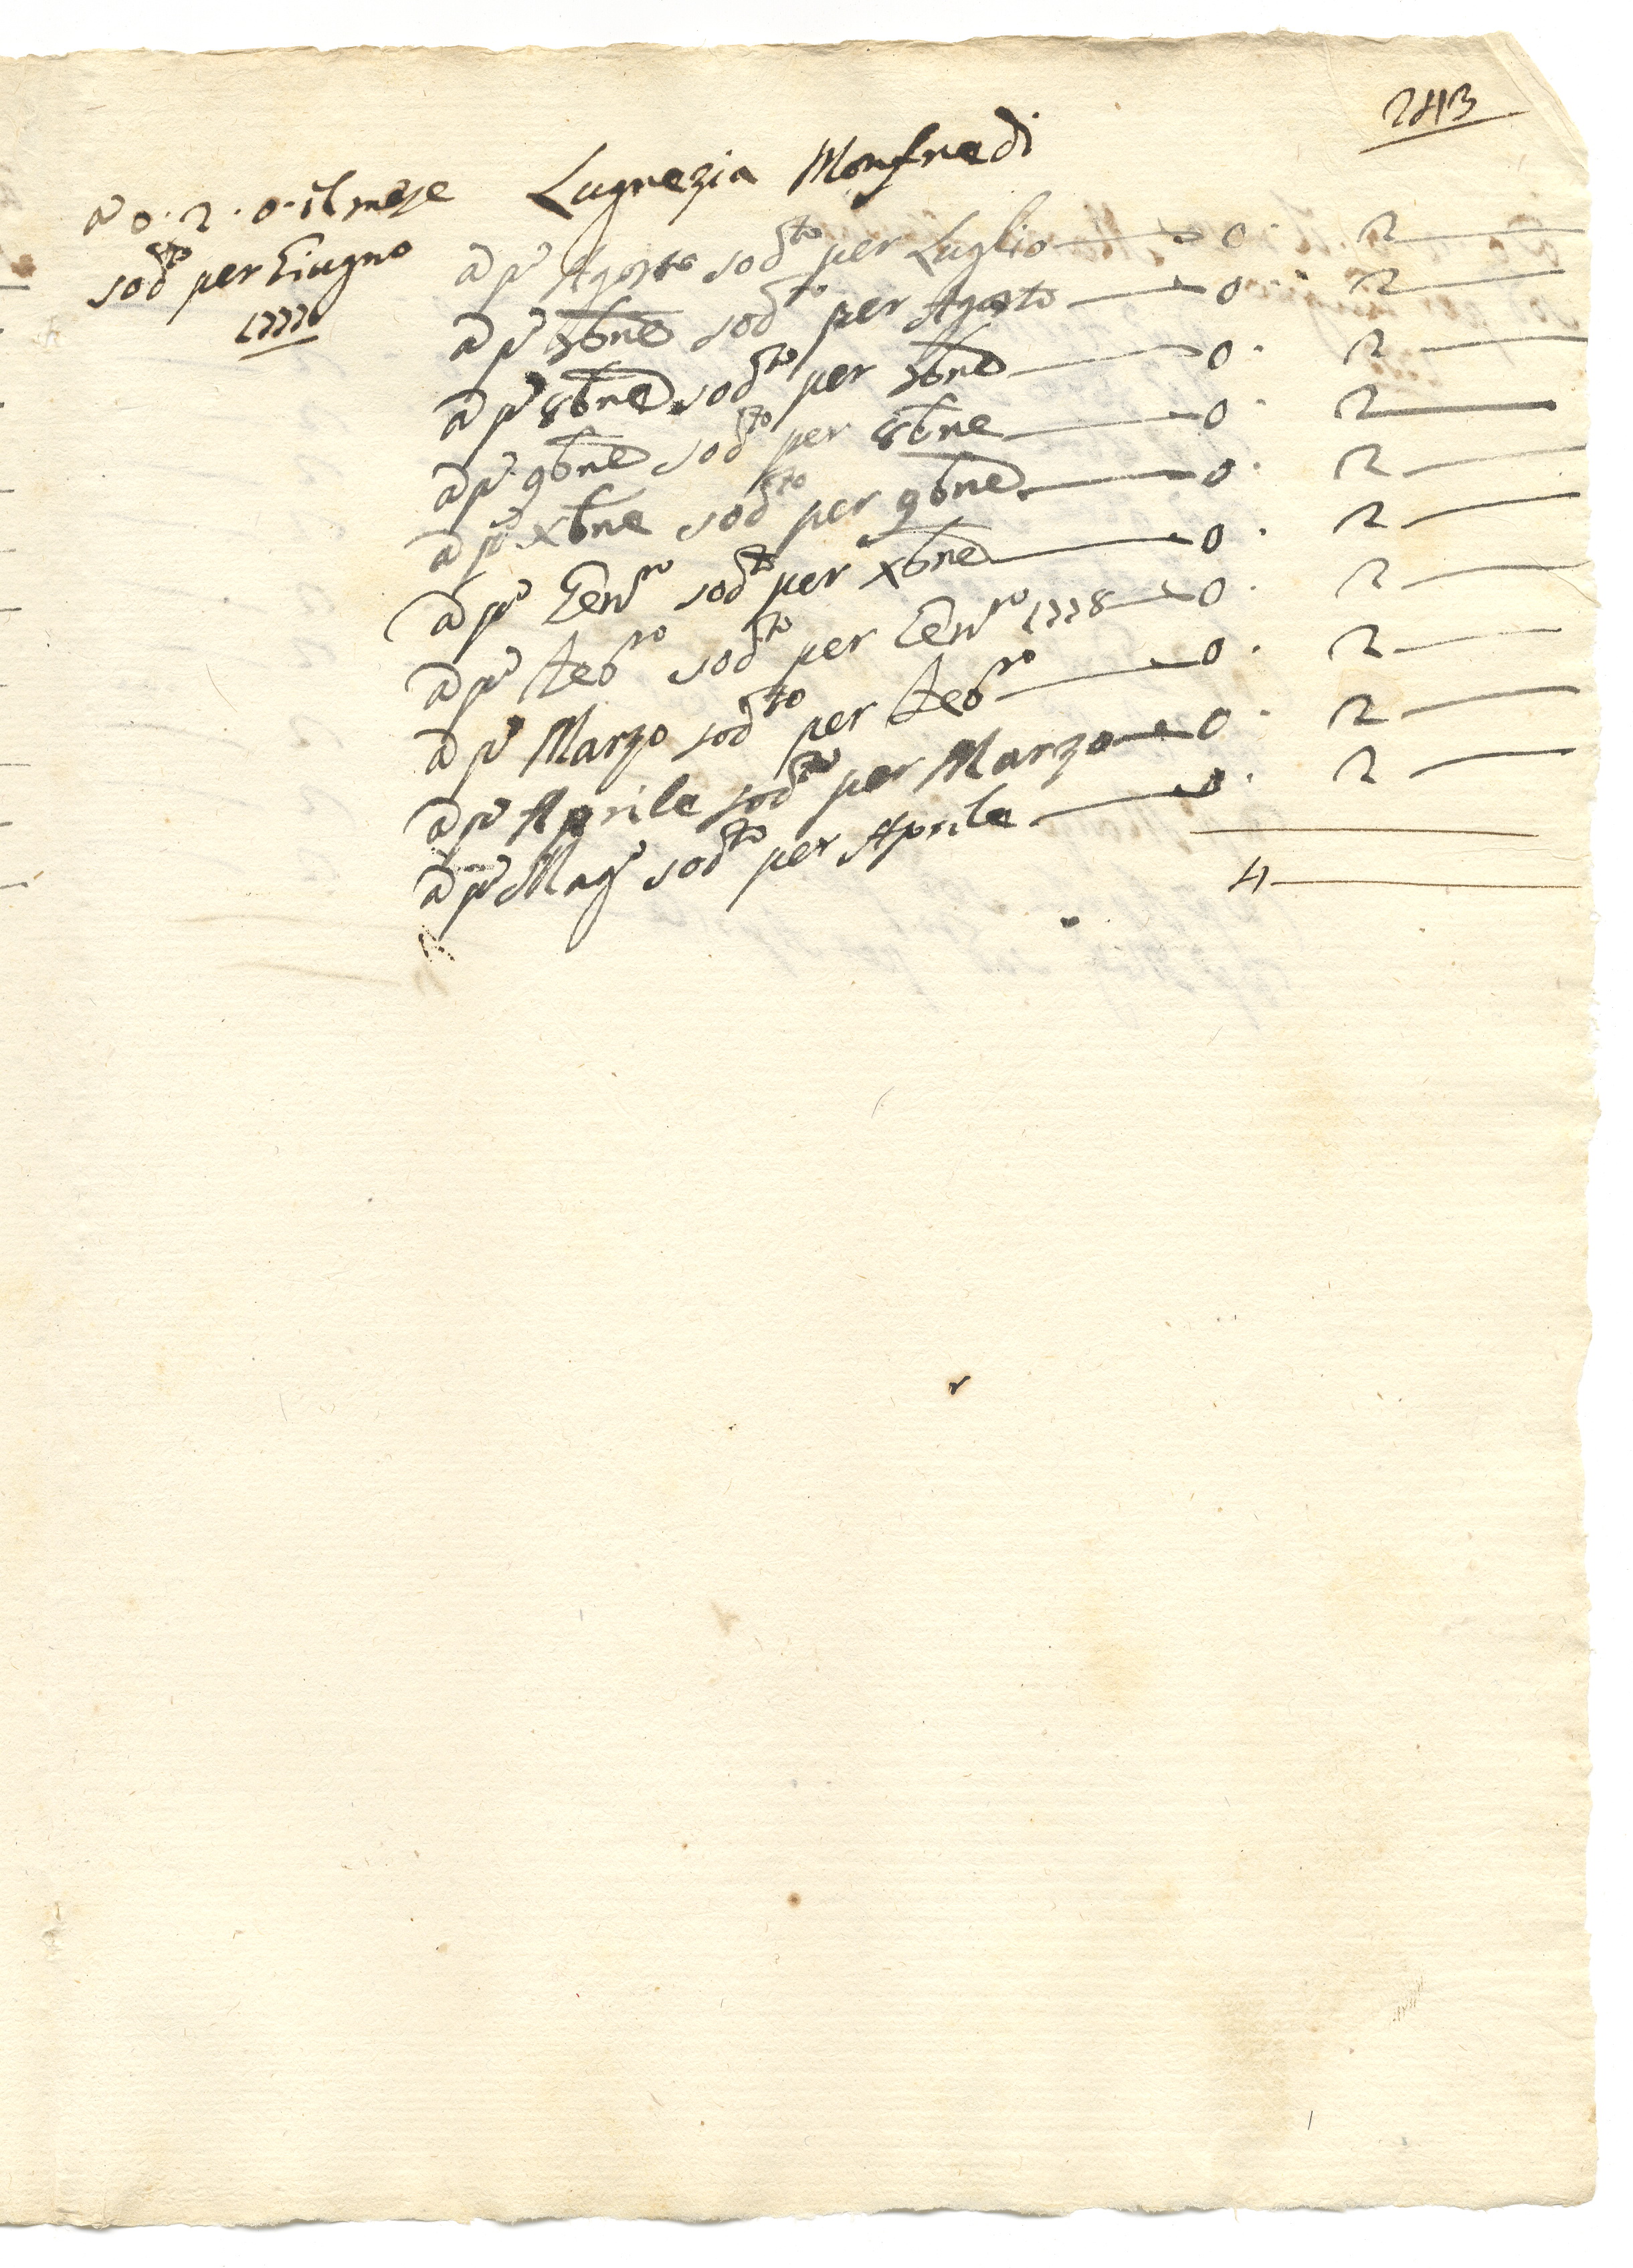 243
a 0. 2. 0. il mese Lugrezia Monfredi
sod.to per Giugno
1777
a p.o Agosto sod.to per Luglio — 0. 2 —
a p.o 7bre sod.to per Agosto — 0. 2 —
a p.o 8bre sod.to per 7bre — 0. 2 —
a p.o 9bre sod.to per 8bre — 0. 2 —
a p.o Xbre sod.to per 9bre — 0. 2 —
a p.o Gen.ro sod.to per Xbre — 0. 2 —
a p.o Feb.ro sod.to per Gen.ro 1778 — 0. 2 —
a p.o Marzo sod.to per Feb.ro — 0. 2 —
a p.o Aprile sod.to per Marzo — 0. 2 —
a p.o Mag.o sod.to per Aprile — 0. 2 —
4 —